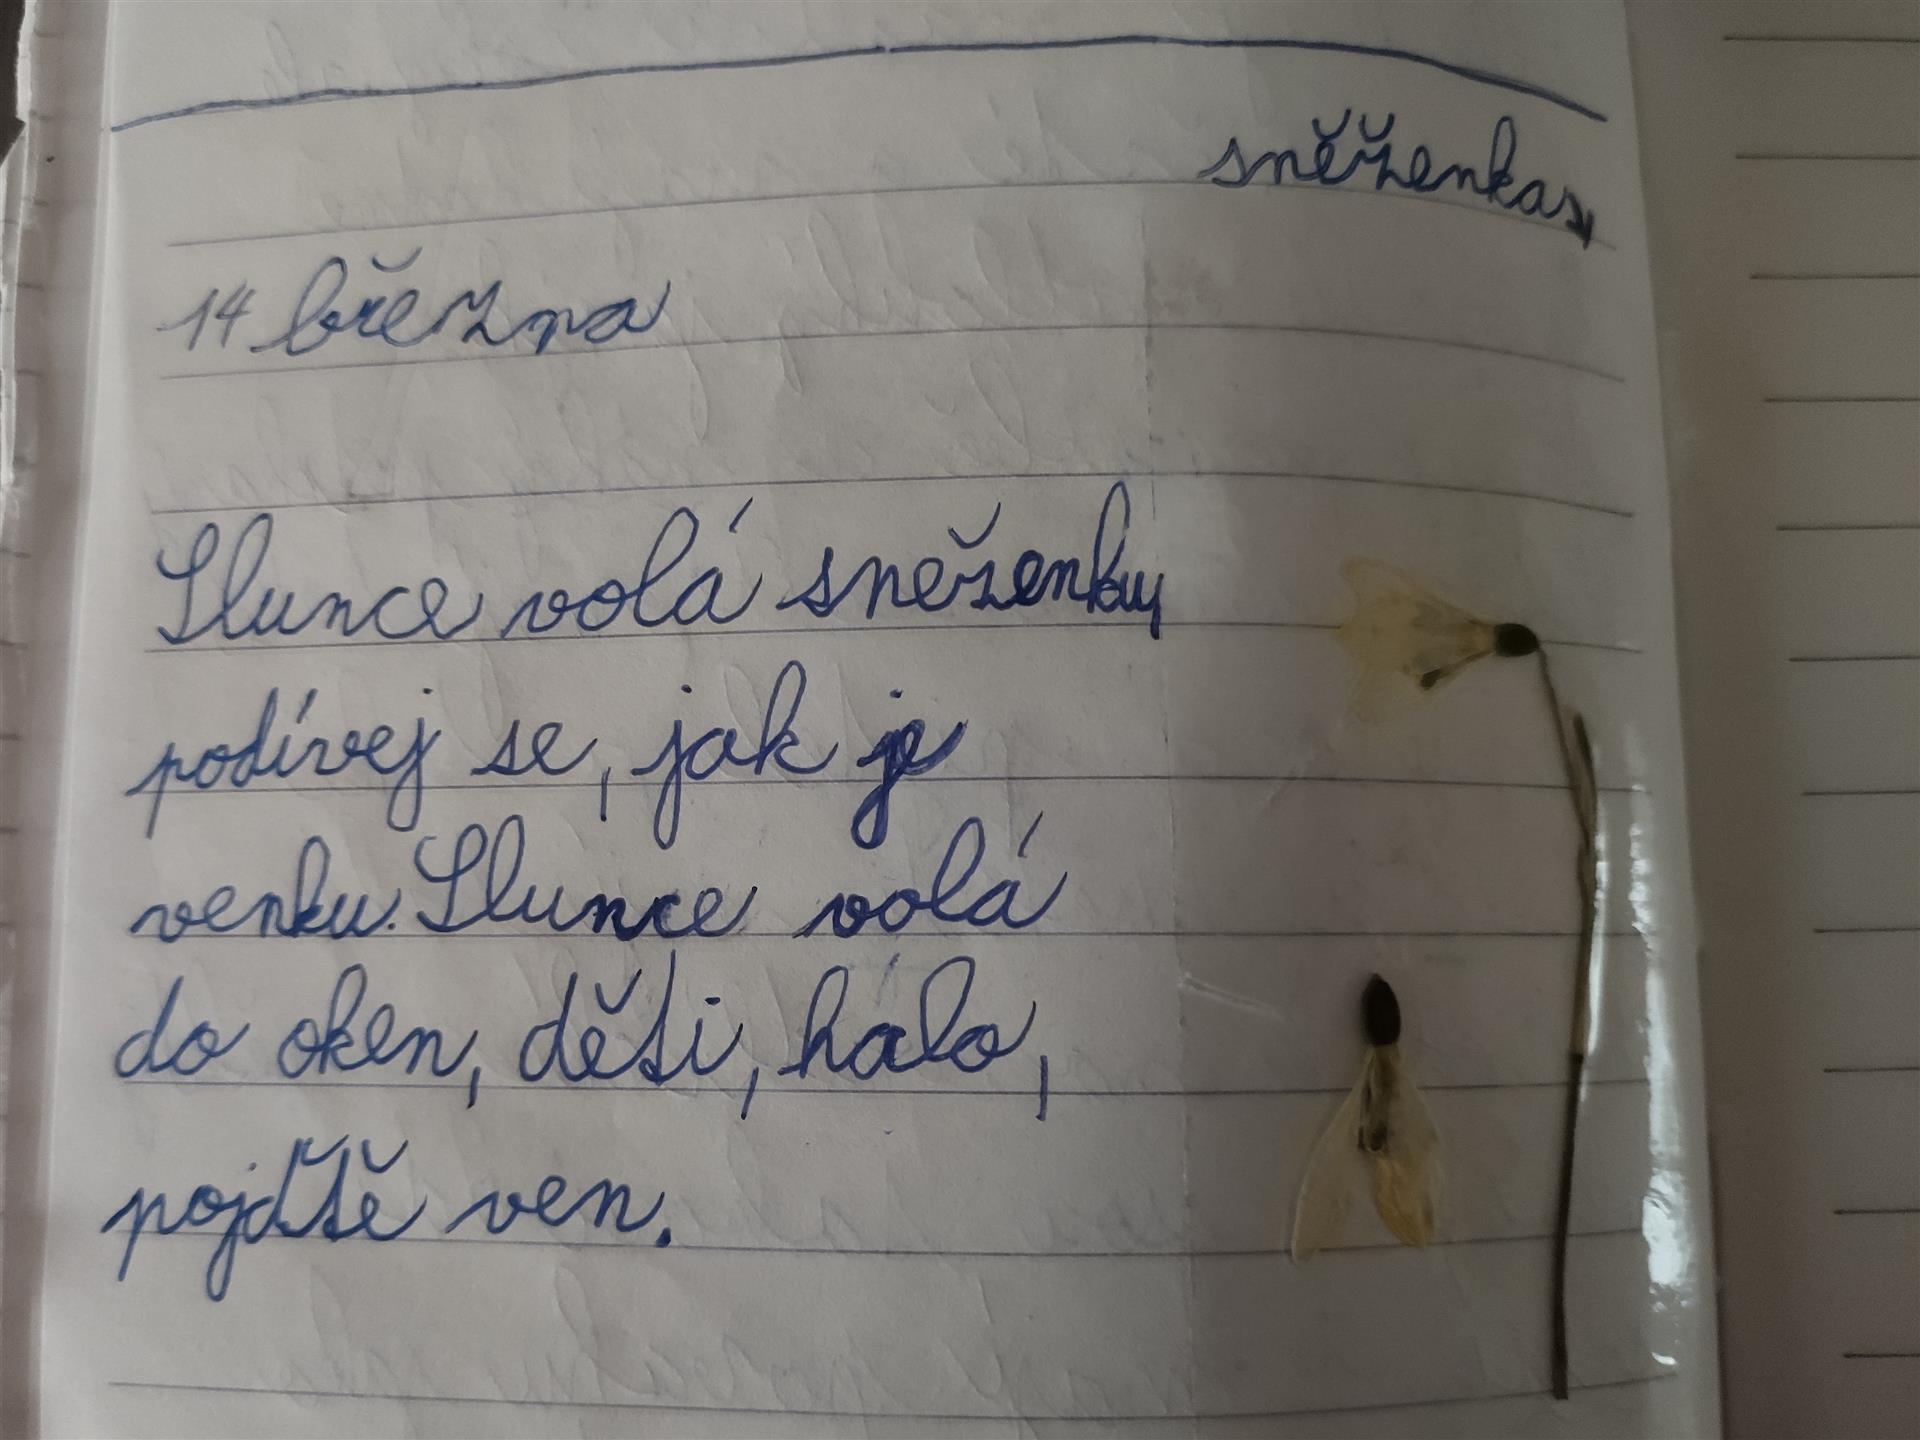 sněženkay
14 března
Slunce volá sneženky
podívej se, jak je
venku. Slunce volá
do oken, děti, hálo,
pojďtě ven.